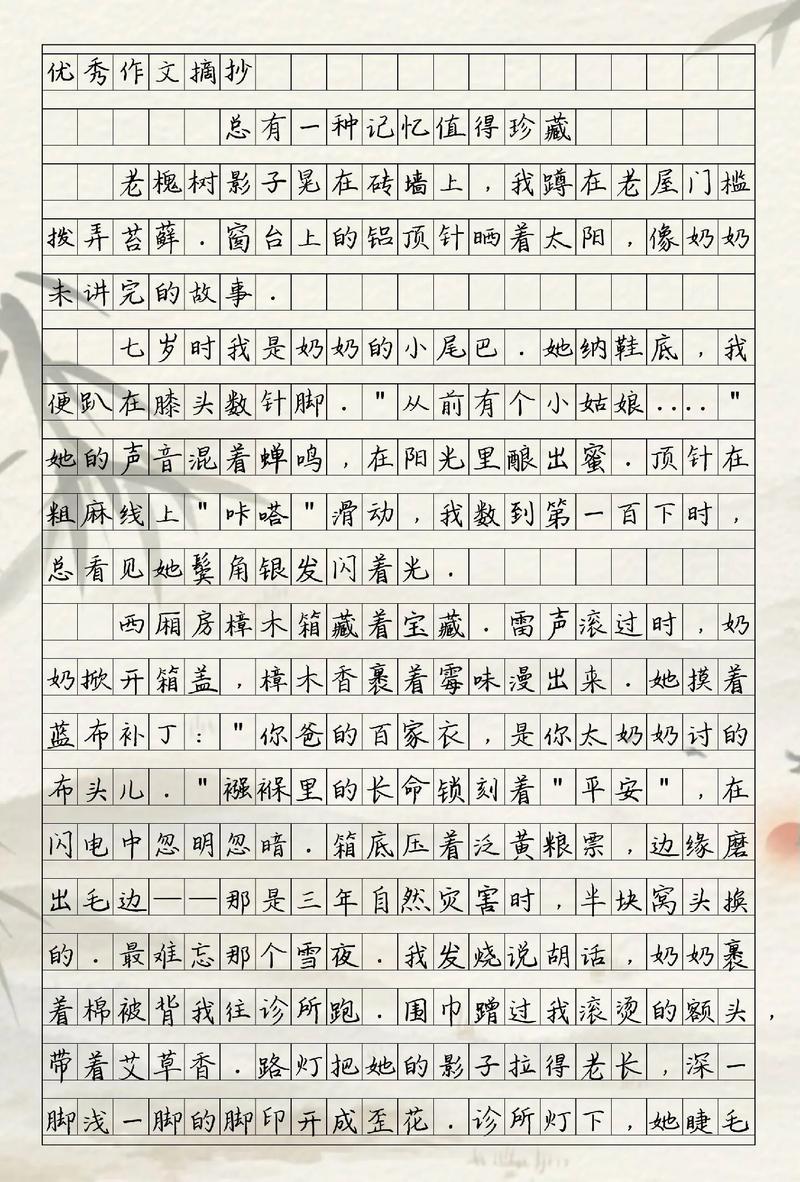 优秀作文摘抄
总有一种记忆值得珍藏
老槐树影子晃在砖墙上，我蹲在老屋门槛
拨弄苔藓．窗台上的铝顶针晒着太阳，像奶奶
未讲完的故事．
七岁时我是奶奶的小尾巴．她纳鞋底，我
便趴在膝头数针脚．"从前有个小姑娘...."
她的声音混着蝉鸣，在阳光里酿出蜜．顶针在
粗麻线上"咔嗒"滑动，我数到第一百下时，
总看见她鬓角银发闪着光．
西厢房樟木箱藏着宝藏．雷声滚过时，奶
奶掀开箱盖，樟木香裹着霉味漫出来．她摸着
蓝布补丁："你爸的百家衣，是你太奶奶讨的
布头儿．"襁褓里的长命锁刻着"平安"，在
闪电中忽明忽暗．箱底压着泛黄粮票，边缘磨
出毛边——那是三年自然灾害时，半块窝头换
的．最难忘那个雪夜．我发烧说胡话，奶奶裹
着棉被背我往诊所跑．围巾蹭过我滚烫的额头，
带着艾草香．路灯把她的影子拉得老长，深一
脚浅一脚的脚印开成歪花．诊所灯下，她睫毛